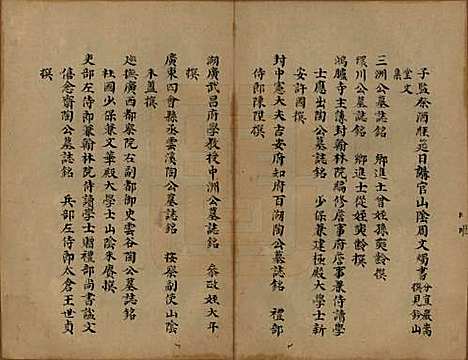 子監祭酒經筵日講官山陰周文燭書 分宜嚴嵩撰見鈐山
堂文集
三洲公墓誌銘 鄉進士曾姪孫奭齡撰
環川公墓誌銘 鄉進士從姪奭齡撰
鴻臚寺主簿封翰林院編修詹事府詹事兼侍讀學
士應出陶公墓誌銘 少保兼建極殿大學士新
安許國撰
封中憲大夫吉安府知府百湖陶公墓誌銘 禮部
侍郎陳陞撰
湖廣武昌府學教授中洲公墓誌銘 參政姪大年
撰
廣東四會縣丞雲溪陶公墓誌銘 按察副使山陰
朱簠撰
巡撫廣西都察院右副都御史雲谷陶公墓誌銘
柱國少保兼文華殿大學士山陰朱賡撰
吏部左侍郎兼翰林院侍讀學士贈禮部尚書諡文
僖念齋陶公墓誌銘 兵部左侍郎太倉王世貞
撰